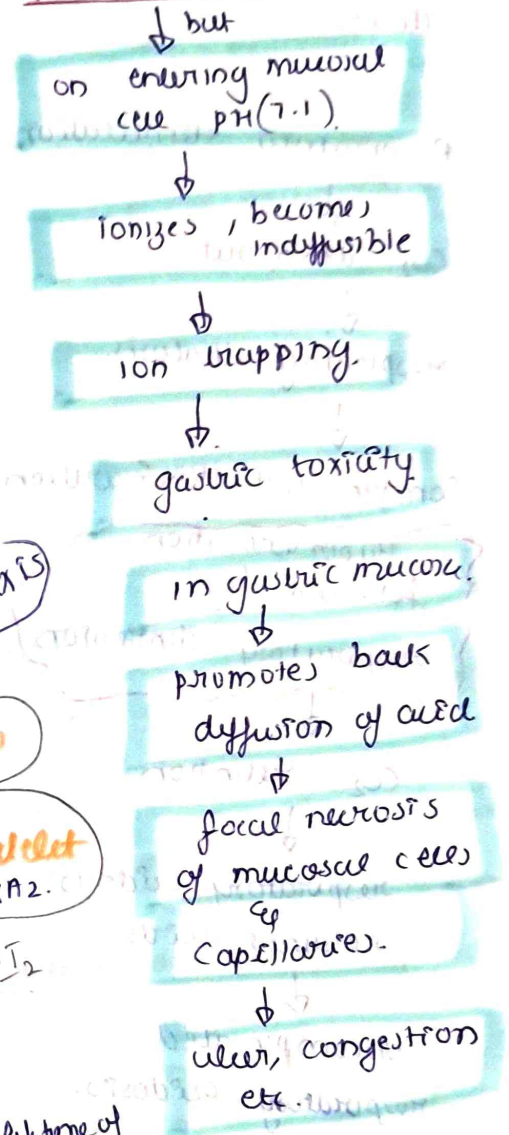 but
on entering mucosal
cell pH (7.1).
ionizes, becomes
indiffusible
ion trapping.
gastric toxicity.
in gastric mucosa.
promotes back
diffusion of acid
focal necrosis
of mucosal cells
&
capillaries.
ulcer, congestion
etc.
A2.
I2
of